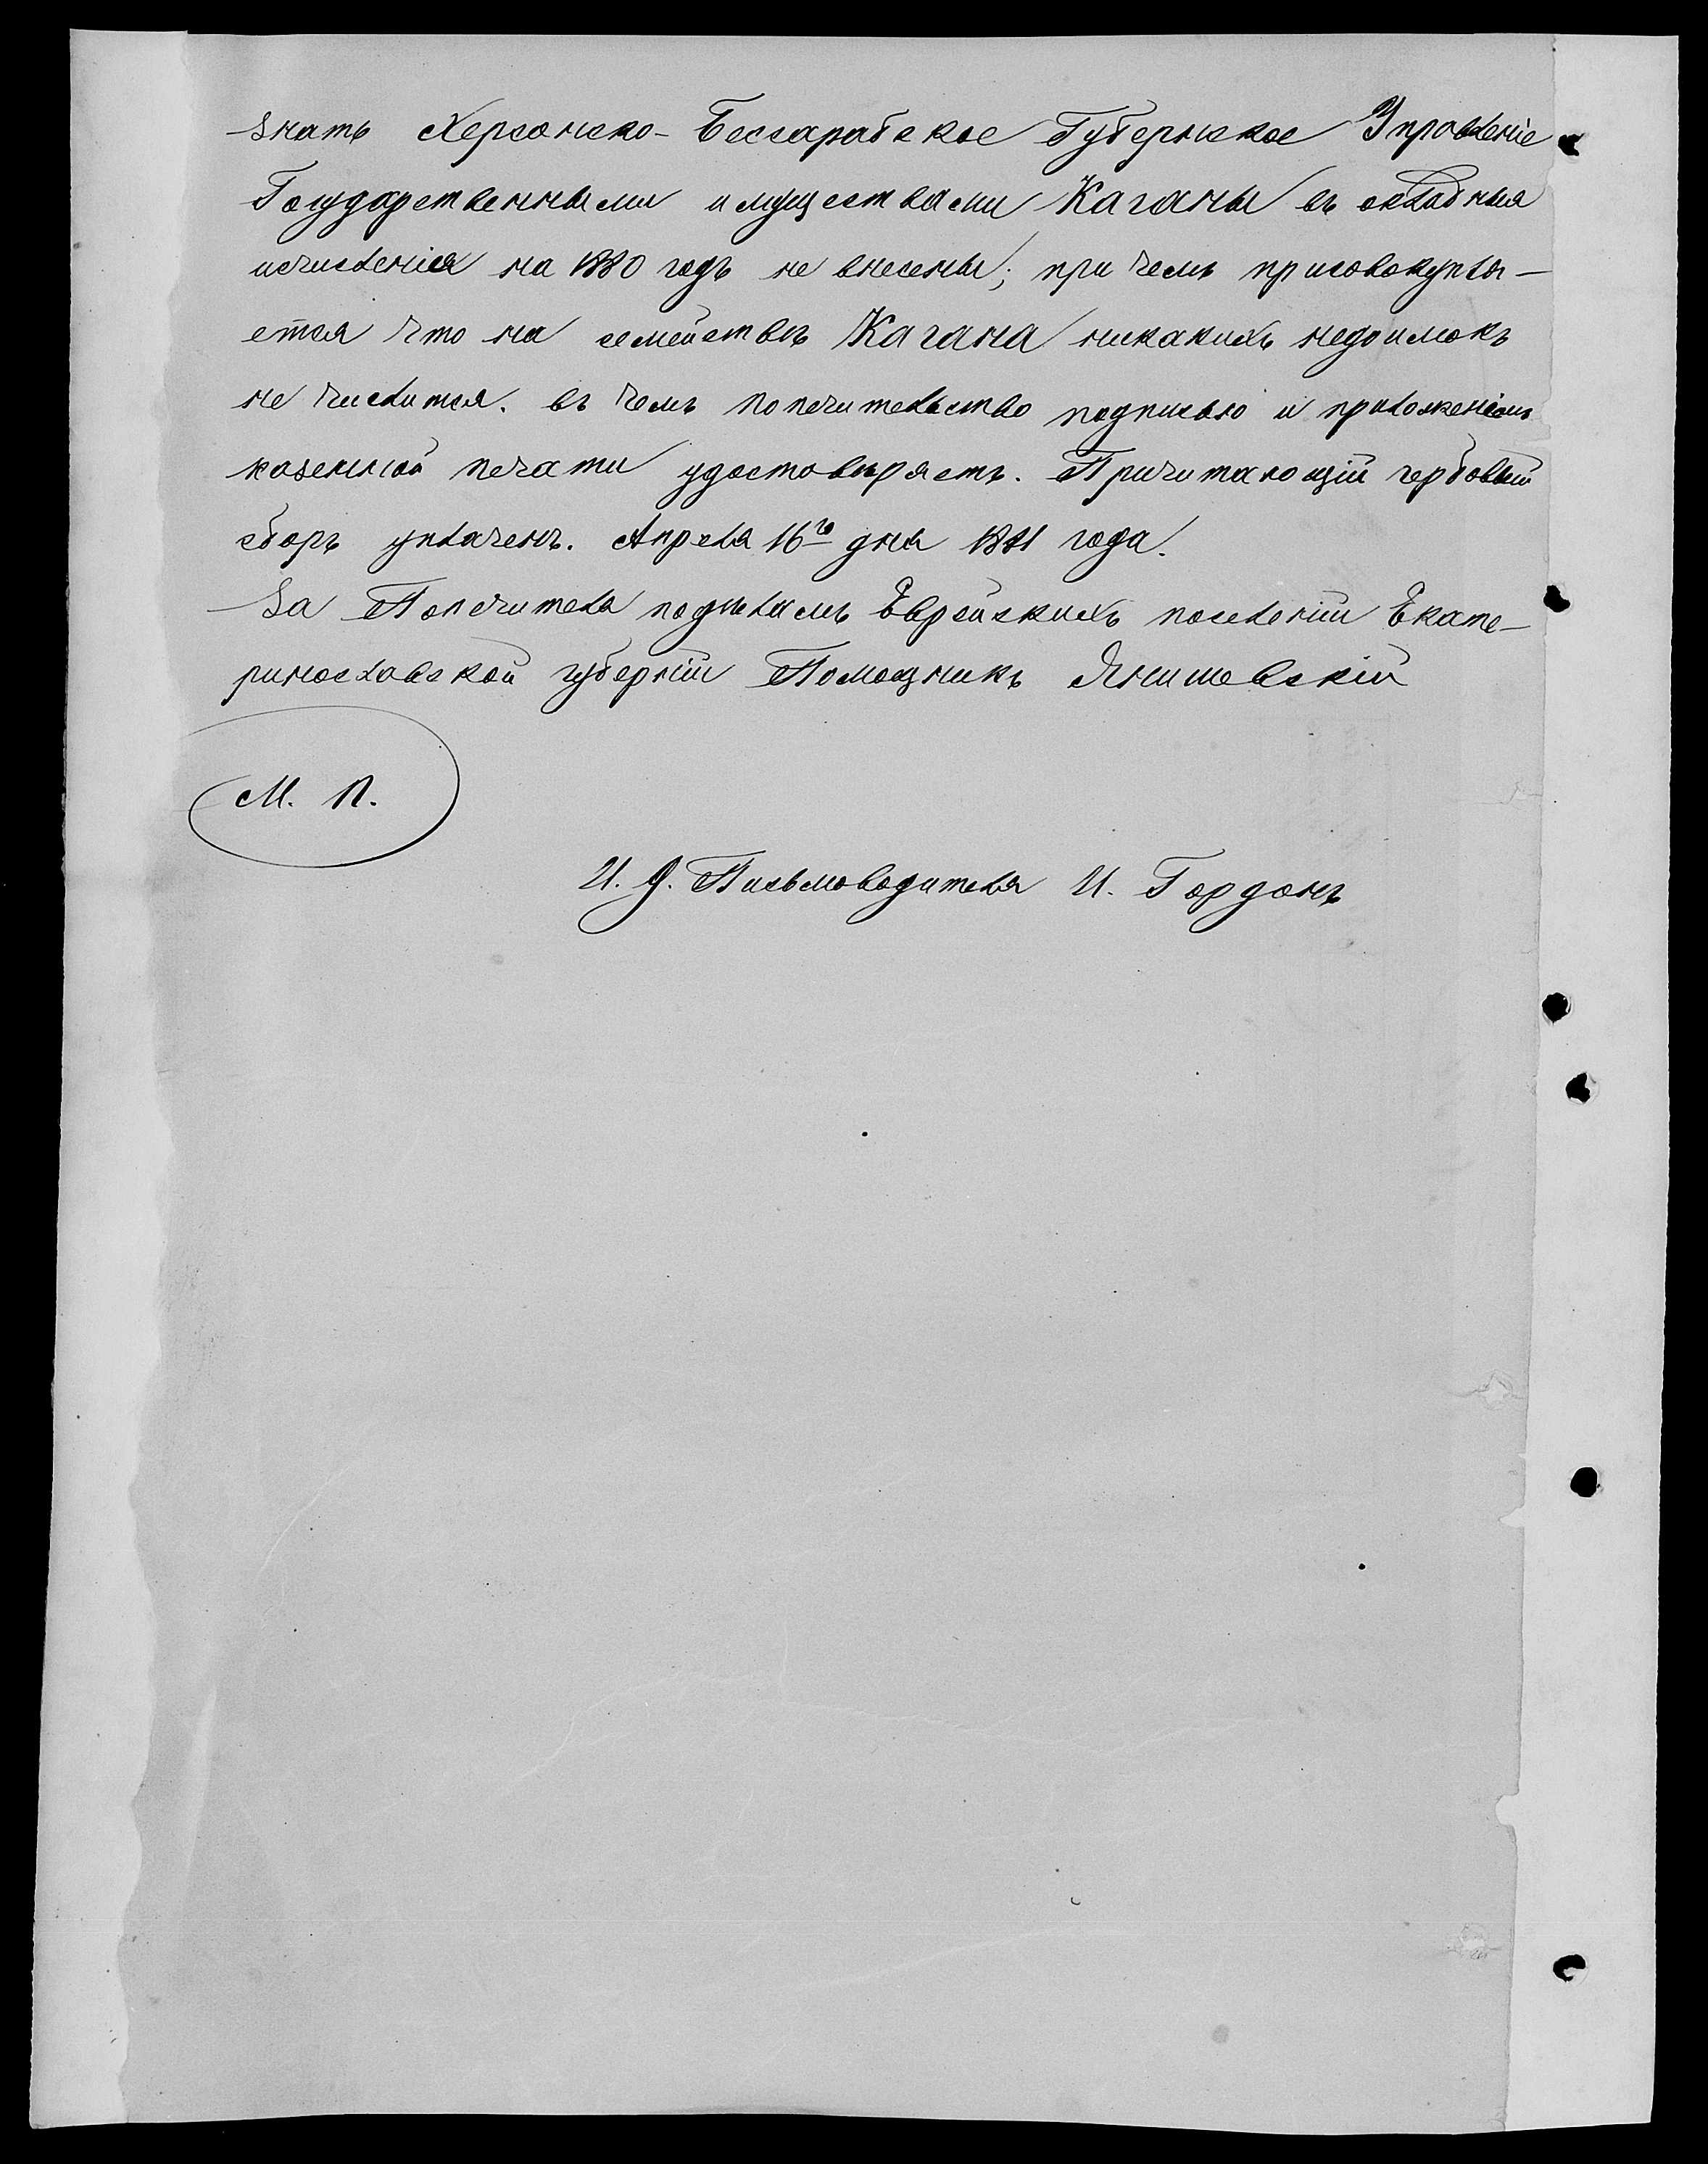 знать Херсонско-Бессарабское Губернское Управленіе
Государственными имуществами Каганы въ окладныя
исчисленія на 1880 годъ не внесены; при чемъ присовокупля-
ется что на семействѣ Кагана никакихъ недоимокъ
не числится. въ чемъ попечительство подписью и приложеніемъ
казенной печати удостовѣряетъ. Причитающій гербовый
сборъ уплаченъ. Апреля 16го дня 1881 года.
За Попечителя поднѣламъ Еврейскихъ поселеній Екате-
ринославской губерніи Помощникъ Янишевскій
М. П.
И. д. Письмоводителя И. Гордонъ